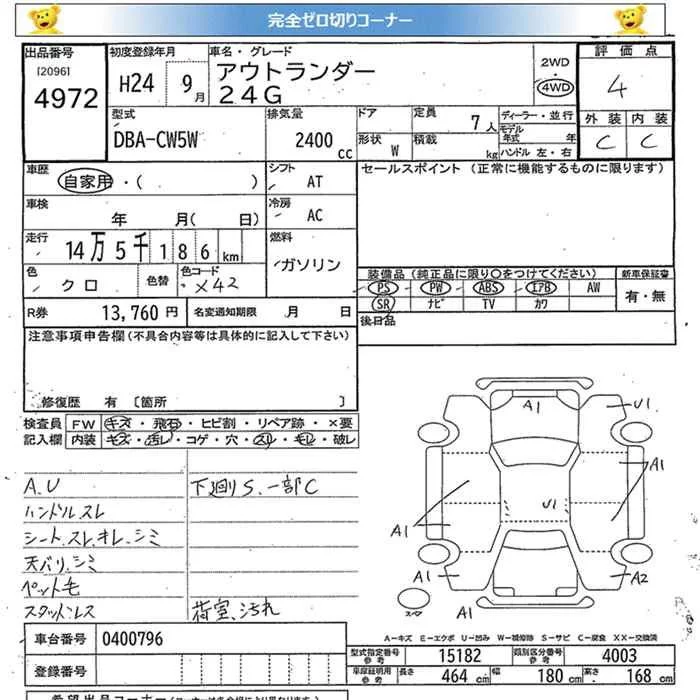 完全ゼロ切りコーナー
出品番号
[2096]
4972
初度登録年月
H24 9月
車名・グレード
アウトランダー
24G
2WD
・
4WD
評価点
4
外装 内装
C C
型式
DBA-CW5W
排気量
2400 cc
ドア
定員
7人
形状 W
積載 kg
ディーラー・並行
モデル年式 年
ハンドル 左・右
車歴
自家用・( )
シフト
AT
車検
年 月( 日)
冷房
AC
走行
14万5千186km
燃料
ガソリン
色
クロ
色替
色コード
X42
R券 13,760円
名変通知期限 月 日
セールスポイント (正常に機能するものに限ります)
装備品(純正品に限り○をつけてください)
PS PW ABS エアB AW
SR ナビ TV カワ
新車保証書
有・無
後日品
注意事項申告欄(不具合内容等は具体的に記入して下さい)
修復歴 有 〔箇所 〕
検査員記入欄
FW キズ・飛石・ヒビ割・リペア跡・×要
内装 キズ・汚レ・コゲ・穴・スレ・キレ・破レ
A.U
ハンドルスレ
シート.スレ.キレ.シミ
天バリ.シミ
ペット毛
スタッドレス
下廻りS.一部C
荷室.汚れ
A1
U1
A1
U1
A1
A1
A2
A1
スペア
A-キズ E-エクボ U-凹み W-補修跡 S-サビ C-腐食 XX-交換済
車台番号 0400796
登録番号
型式指定番号 参考 15182
類別区分番号 参考 4003
車庫証明用 参考 長さ 464 cm 幅 180 cm 高さ 168 cm